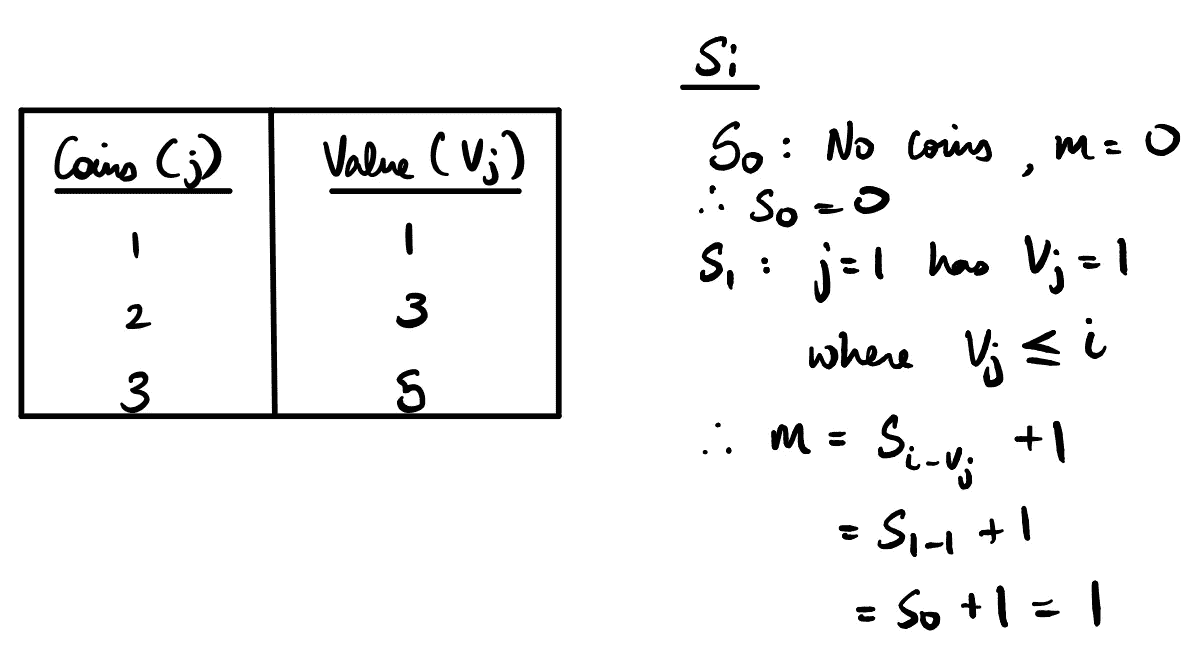 Coins (j) Value (Vj)
1 1
2 3
3 5
Si
S0 : No coins , m = 0
∴ S0 = 0
S1 : j = 1 has Vj = 1
where Vj ≤ i
∴ m = Si-vj + 1
= S1-1 + 1
= S0 + 1 = 1